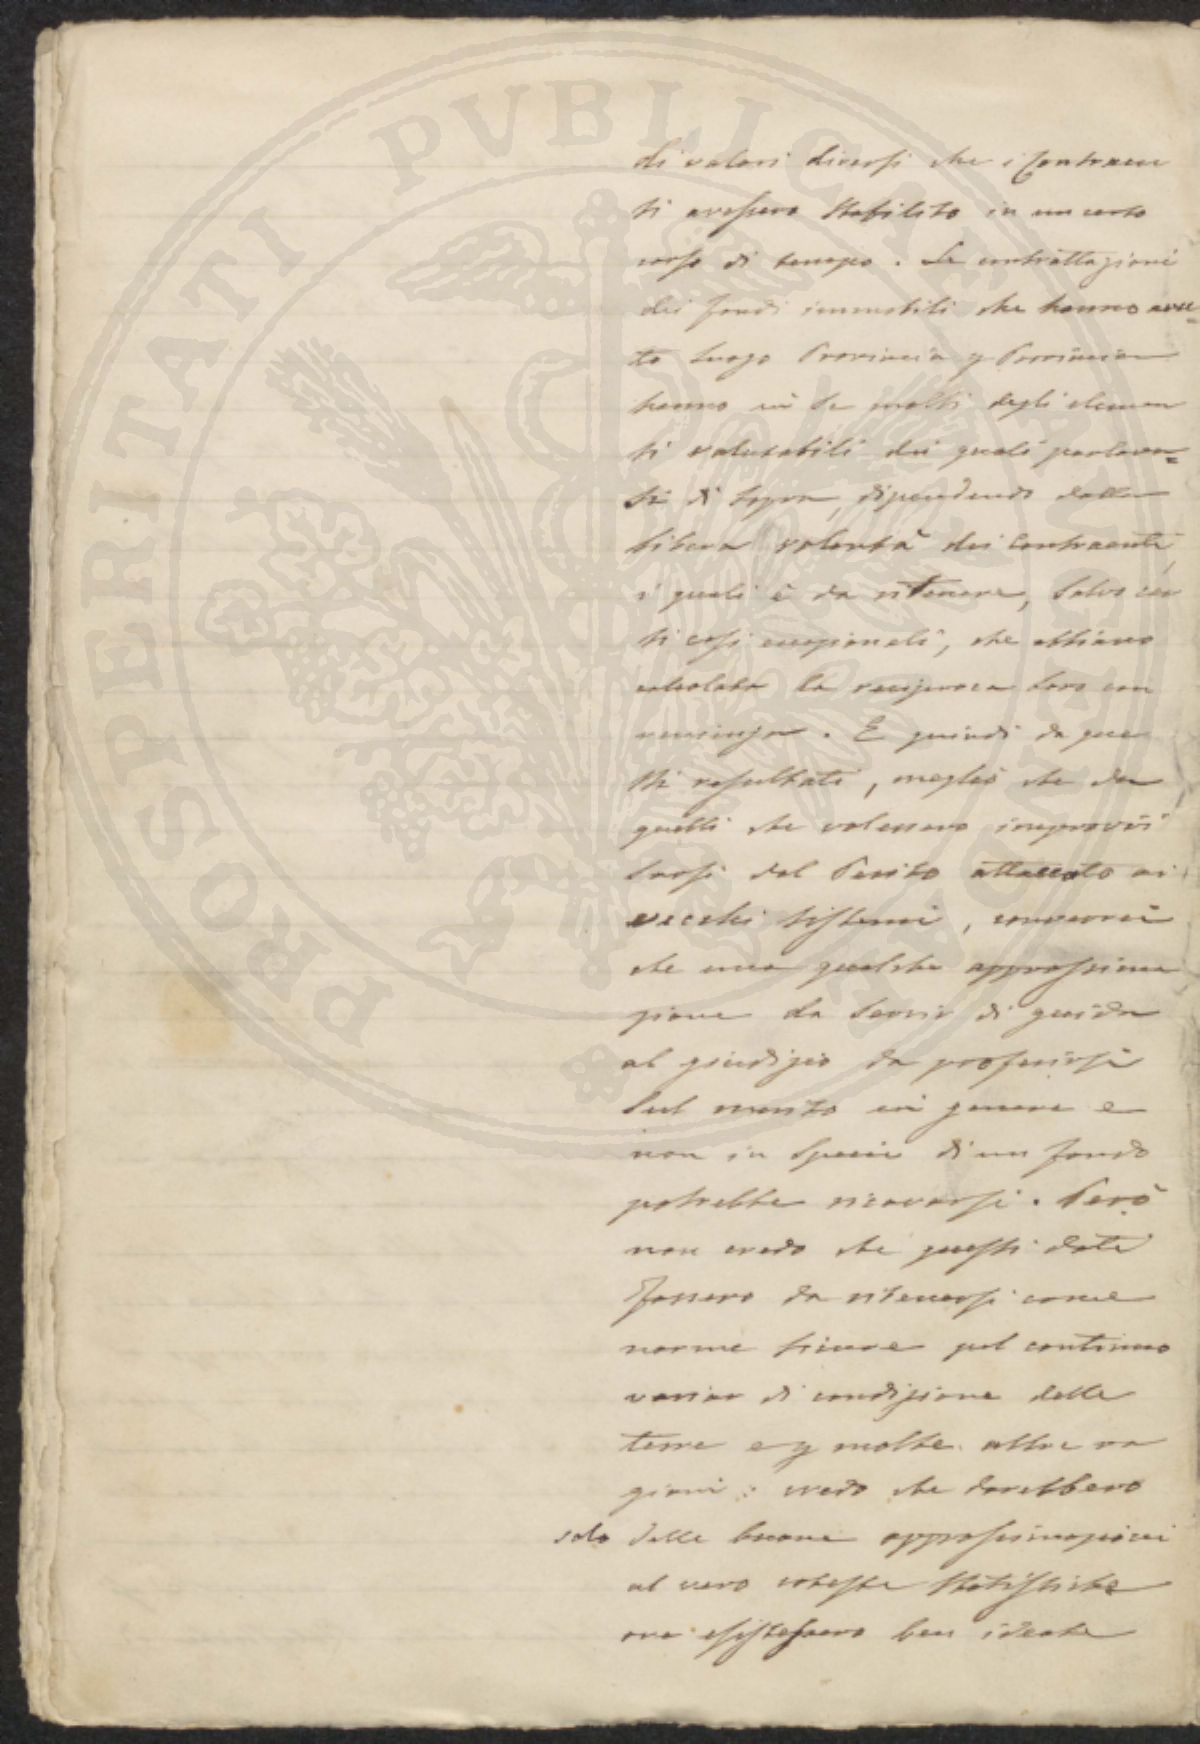 PROSPERITATI PVBLICAE AVGENDAE
di valori diversi che i Contraen
ti avessero stabilito in un certo
corso di tempo. Le contrattazioni
dei fondi immobili che hanno avu=
to luogo Provincia p Provincia
hanno in se molti degli elemen
ti valutabili dei quali parlava=
si di sopra, dipendendo dalla
libera volontà dei Contraenti,
i quali è da ritenere, salvo cer
ti casi eccezionali, che abbiano
calcolata la reciproca loro con
venienza. E quindi da que
sti resultati, meglio che da
quelli che volessero improvvi
sarsi dal Perito attaccato ai
vecchi sistemi, converrei
che una qualche approssima
zione da servir di guida
al giudizio da proferirsi
sul merito in genere e
non in specie di un fondo
potrebbe ricavarsi. Però
non credo che questi dati
fossero da ritenersi come
norme sicure pel continuo
variar di condizione delle
terre e p molte altre ra
gioni: credo che darebbero
solo delle buone approssimazioni
al vero coteste statistiche
ove esistessero ben ideate